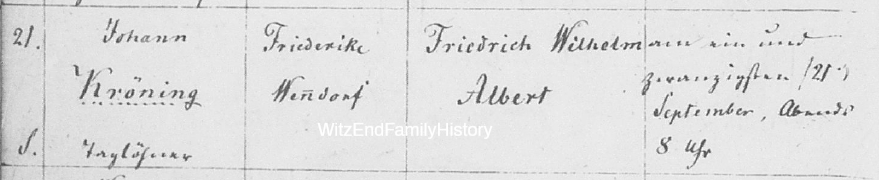 21.
Johann
Kröning
S. Taglöhner
Friederike
Wen̄dorf
Friedrich Wilhelm
Albert
am ein und
zwanzigsten (21.)
September, Abends
8 Uhr
WitzEndFamilyHistory